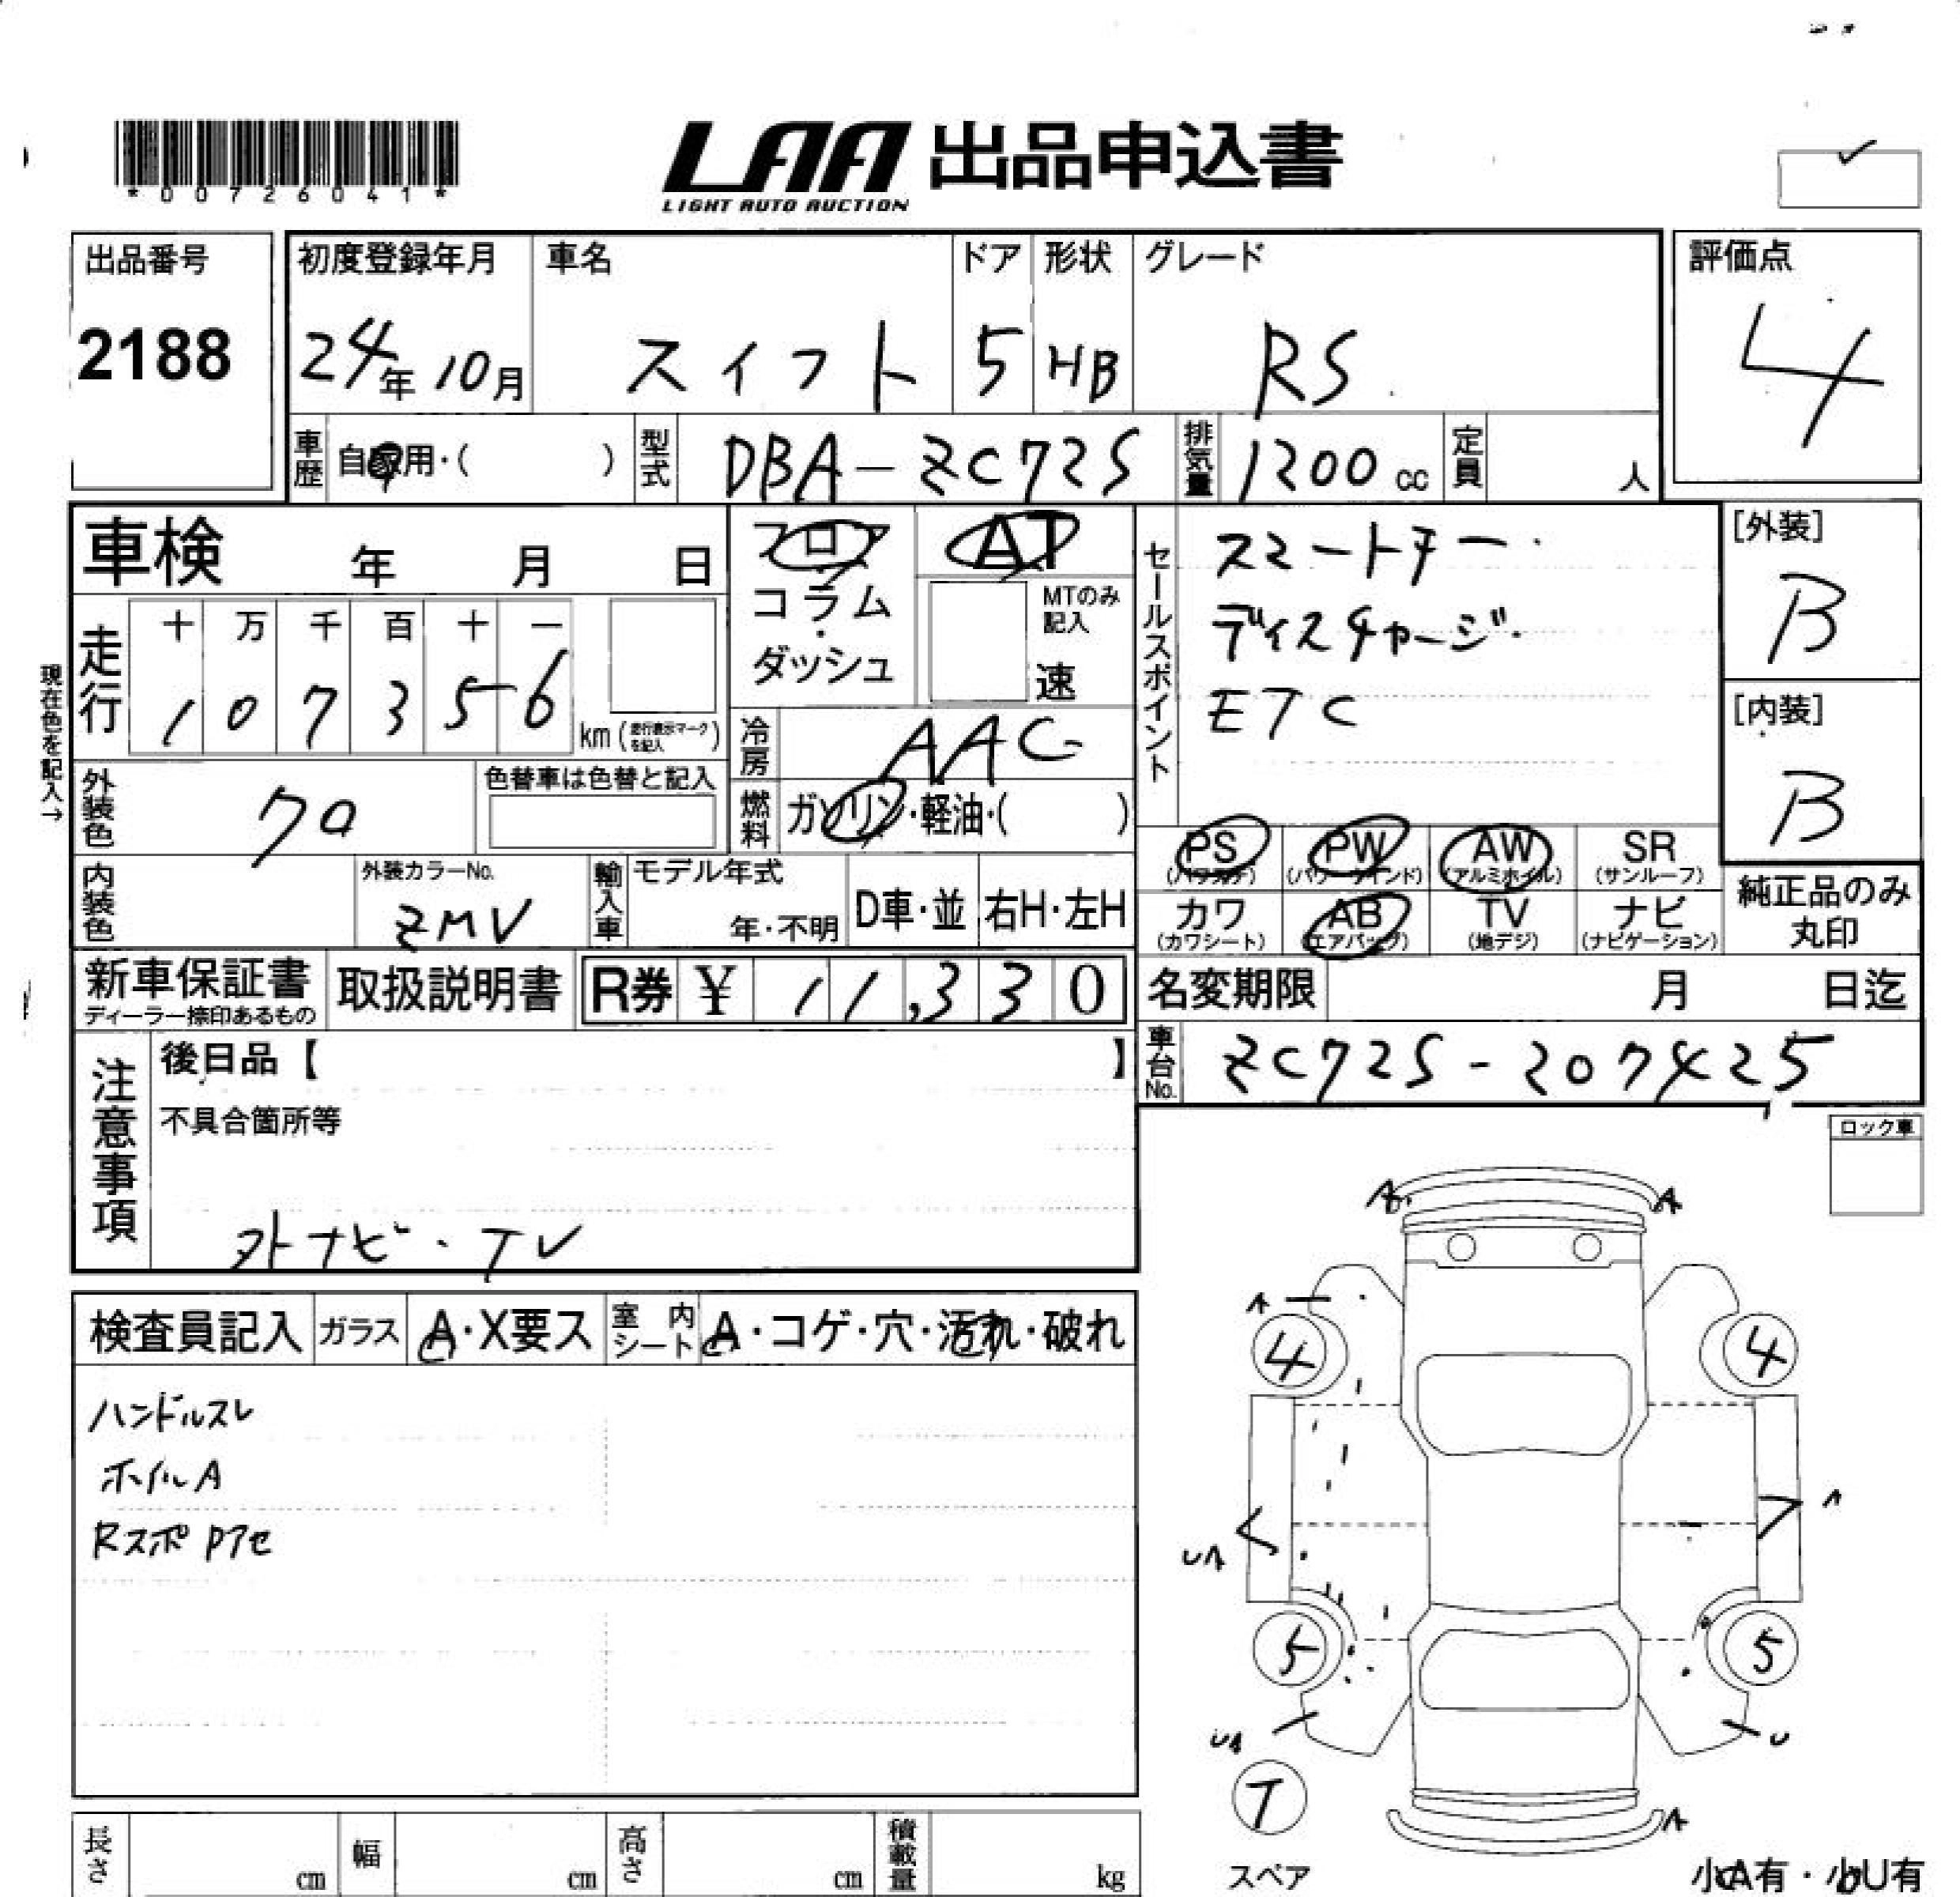 *00726041*
LAA 出品申込書
LIGHT AUTO AUCTION
出品番号 初度登録年月 車名 ドア 形状 グレード 評価点
2188 24年10月 スイフト 5 HB RS 4
車歴 自家用・( ) 型式 DBA-ZC72S 排気量 1200cc 定員 人
車検 年 月 日
フロア AT
コラム・ダッシュ MTのみ記入 速
セールスポイント
スマートキー・
ディスチャージ・
ETC
[外装]
B
[内装]
B
現在色を記入→
走行 十 万 千 百 十 一
107356 km (走行表示マークを記入)
冷房 AAC
外装色 クロ 色替車は色替と記入
燃料 ガソリン・軽油・( )
PS (パワステ) PW (パワーウインド) AW (アルミホイル) SR (サンルーフ)
カワ (カワシート) AB (エアバッグ) TV (地デジ) ナビ (ナビゲーション)
純正品のみ丸印
内装色 外装カラーNo. ZMV 輸入車 モデル年式 年・不明 D車・並 右H・左H
新車保証書 ディーラー捺印あるもの 取扱説明書 R券 ¥ 11,330
名変期限 月 日迄
車台No. ZC72S-207425
注意事項
後日品【 】
不具合箇所等
外ナビ・TV
ロック車
検査員記入 ガラス A・X要ス 室内シート A・コゲ・穴・汚れ・破れ
ハンドルスレ
ホイルA
Rスポ Pアセ
A A
A
4 4
A
UA
5 5
UA U
T
A
スペア
小A有・小U有
長さ cm 幅 cm 高さ cm 積載量 kg